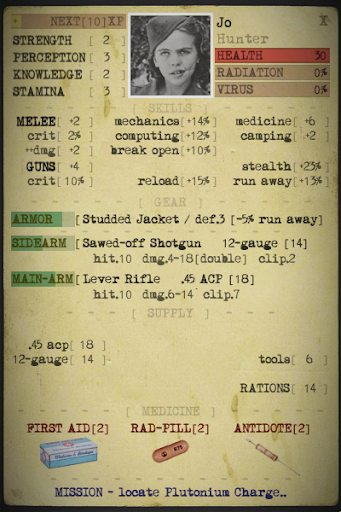 NEXT[10]XP
Jo
X
STRENGTH [ 2 ]
Hunter
PERCEPTION [ 3 ]
HEALTH 30
KNOWLEDGE [ 2 ]
RADIATION 0%
STAMINA [ 3 ]
VIRUS 0%
[ SKILLS ]
MELEE[ +2 ] mechanics[+14%] medicine[+6 ]
crit[ 2% ] computing[+12%] camping[ +2 ]
++dmg[ +2 ] break open[+10%]
GUNS [ +4 ] stealth[+23%]
crit[10%] reload[+15%] run away[+13%]
[ GEAR ]
ARMOR [ Studded Jacket / def.3 [-5% run away]
SIDEARM [ Sawed-off Shotgun 12-gauge [14]
hit.10 dmg.4-18[double] clip.2
MAIN-ARM [ Lever Rifle .45 ACP [18]
hit.10 dmg.6-14 clip.7
[ SUPPLY ]
.45 acp[ 18 ]
12-gauge[ 14 ] tools[ 6 ]
RATIONS[ 14 ]
[ MEDICINE ]
FIRST AID[2] RAD-PILL[2] ANTIDOTE[2]
MISSION - locate Plutonium Charge..